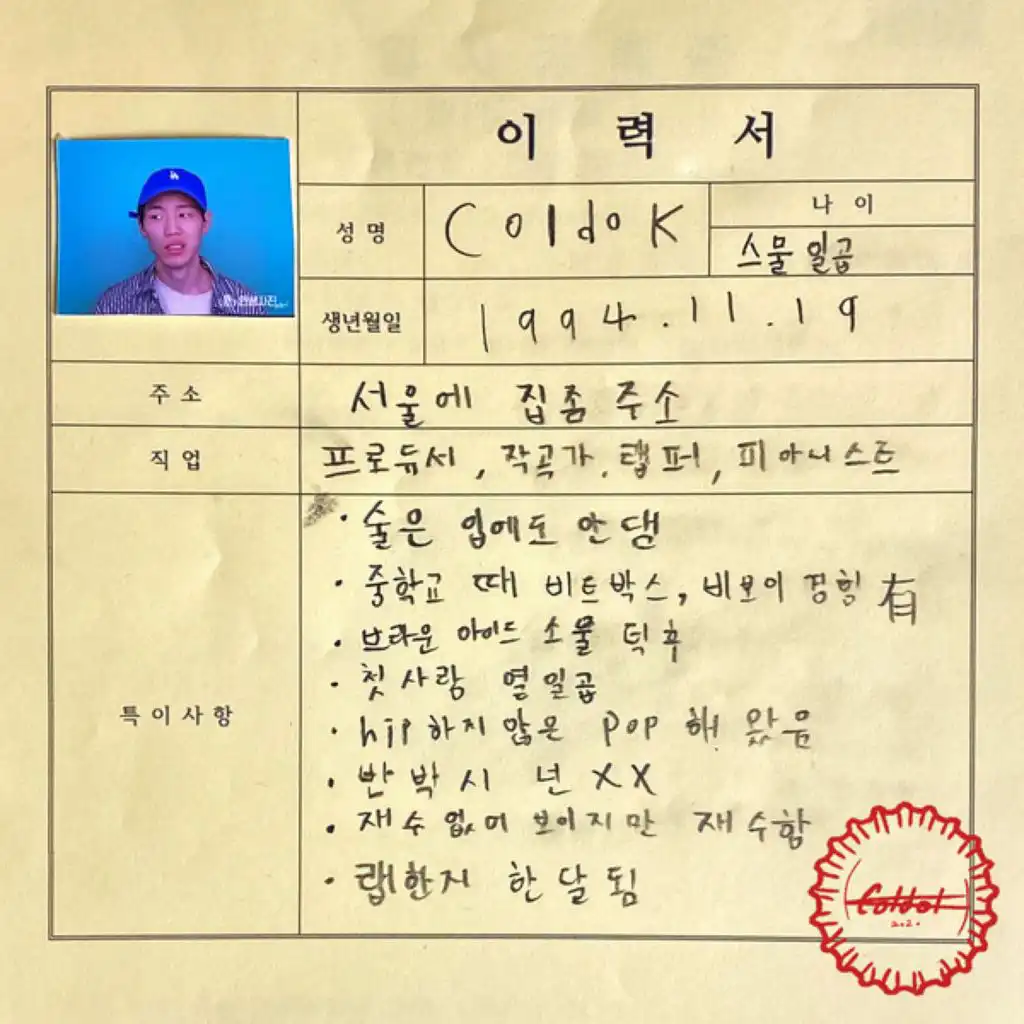 이 력 서
성 명
Coldo K
나 이
스물 일곱
생년월일
1994.11.19
주 소
서울에 집좀 주소
직 업
프로듀서, 작곡가, 랩퍼, 피아니스트
특 이 사 항
· 술은 입에도 안 댐
· 중학교 때 비트박스, 비보이 경험 有
· 브라운 아이드 소울 덕후
· 첫사랑 열일곱
· hip 하지 않은 pop 해 왔음
· 반박시 넌 XX
· 재수 없어 보이지만 재수함
· 랩한지 한달 됨
Coldol